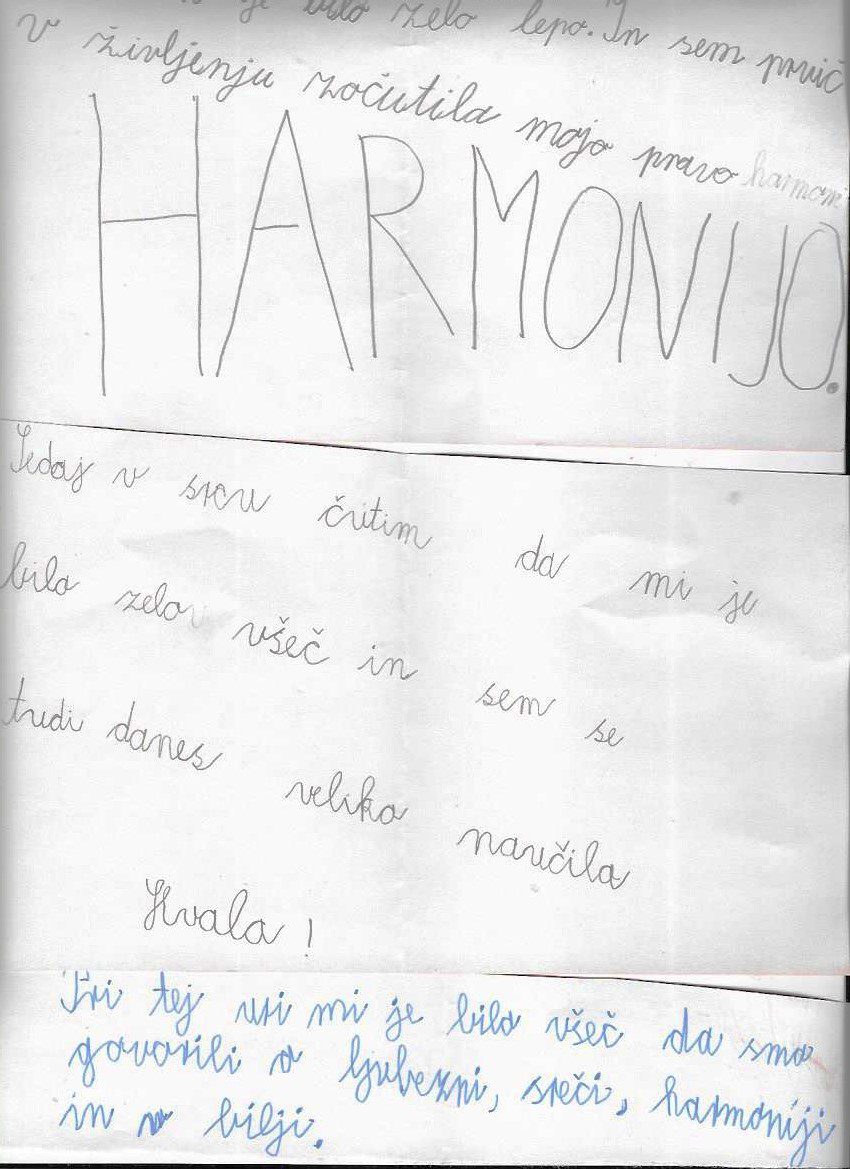 je bilo zelo lepo. In sem prvič
v življenju začutila mojo pravo harmoni
HARMONIJO.
Sedaj v srcu čutim da mi je
bilo zelo všeč in sem se
tudi danes veliko naučila
Hvala!
Pri tej uri mi je bilo všeč da smo
govorili o ljubezni, sreči, harmoniji
in o bilji.